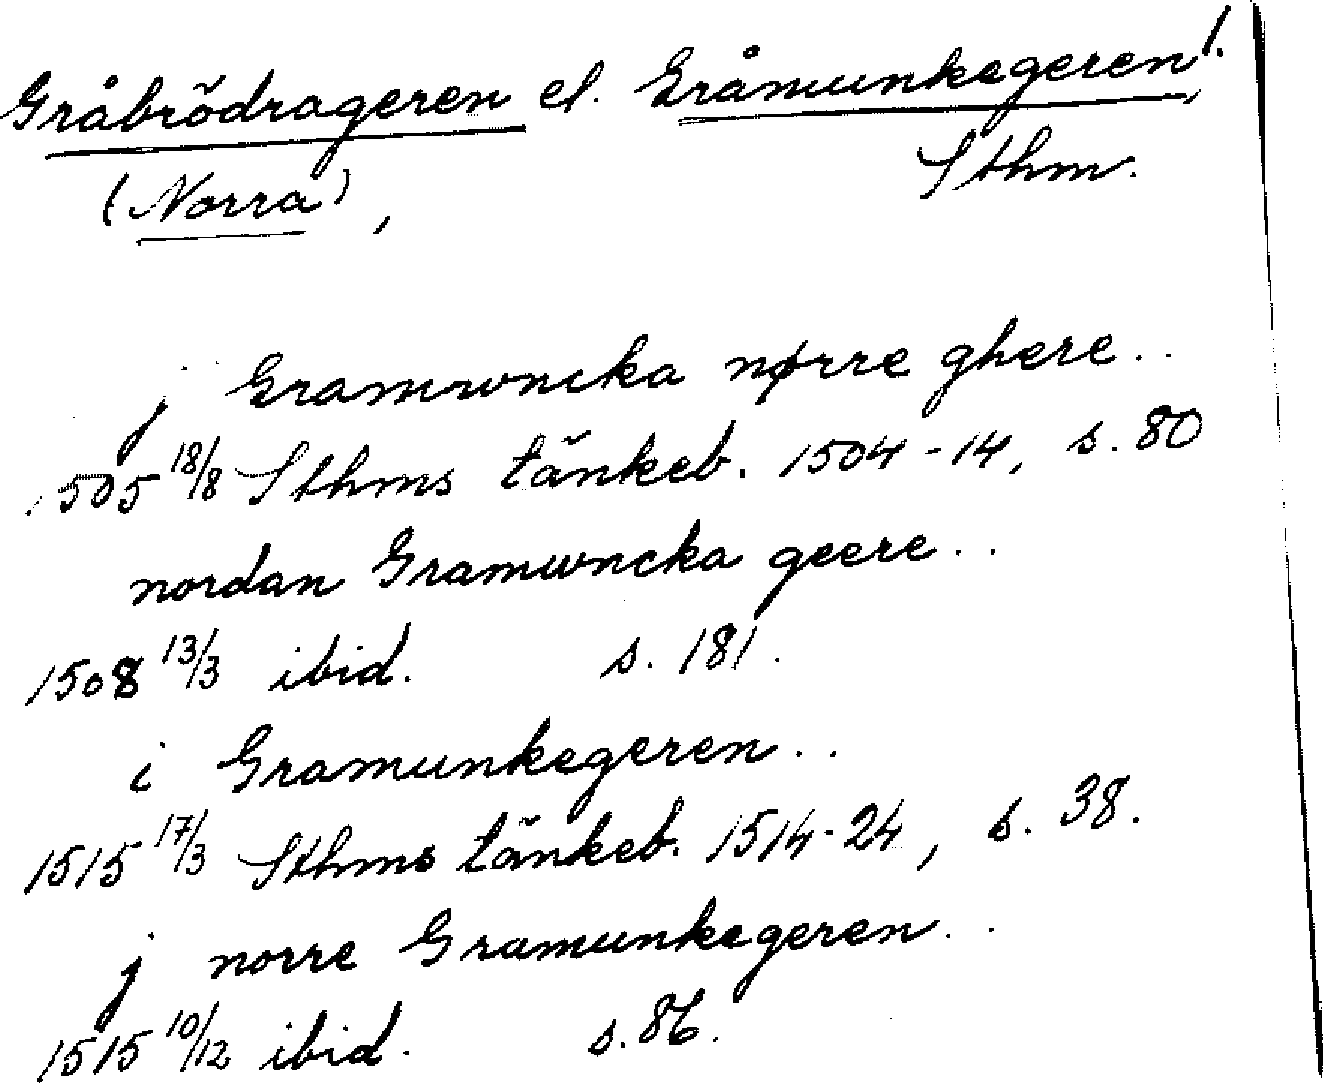 Gråbrödrageren el. Gråmunkegeren 1.
(Norra), Sthm.
j Gramwncka nørre ghere..
1505 18/8 Sthms tänkeb. 1504-14, s. 80
nordan Gramwncka geere..
1508 13/3 ibid. s. 181.
i Gramunkegeren..
1515 17/3 Sthms tänkeb. 1514-24, s. 38.
j norre Gramunkegeren..
1515 10/12 ibid. s. 86.